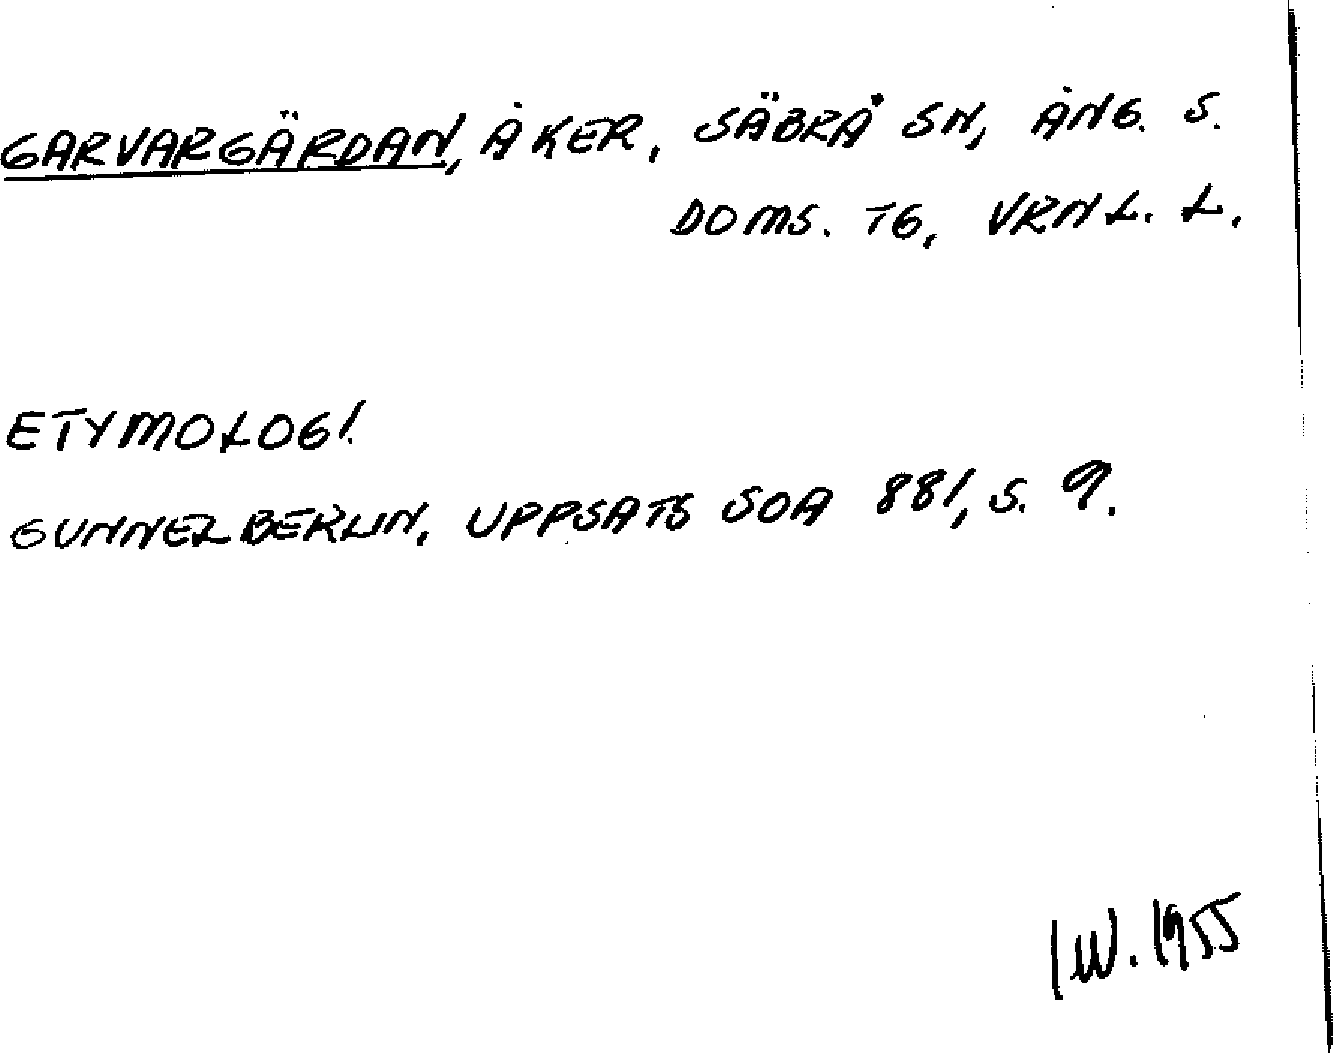 GARVARGÄRDAN, ÅKER, SÄBRÅ SN, ÅNG. S.
DOMS. TG, VRNL. L.
ETYMOLOGI.
GUNNEL BERLIN, UPPSATS SOA 881, S. 9.
IW. 1955